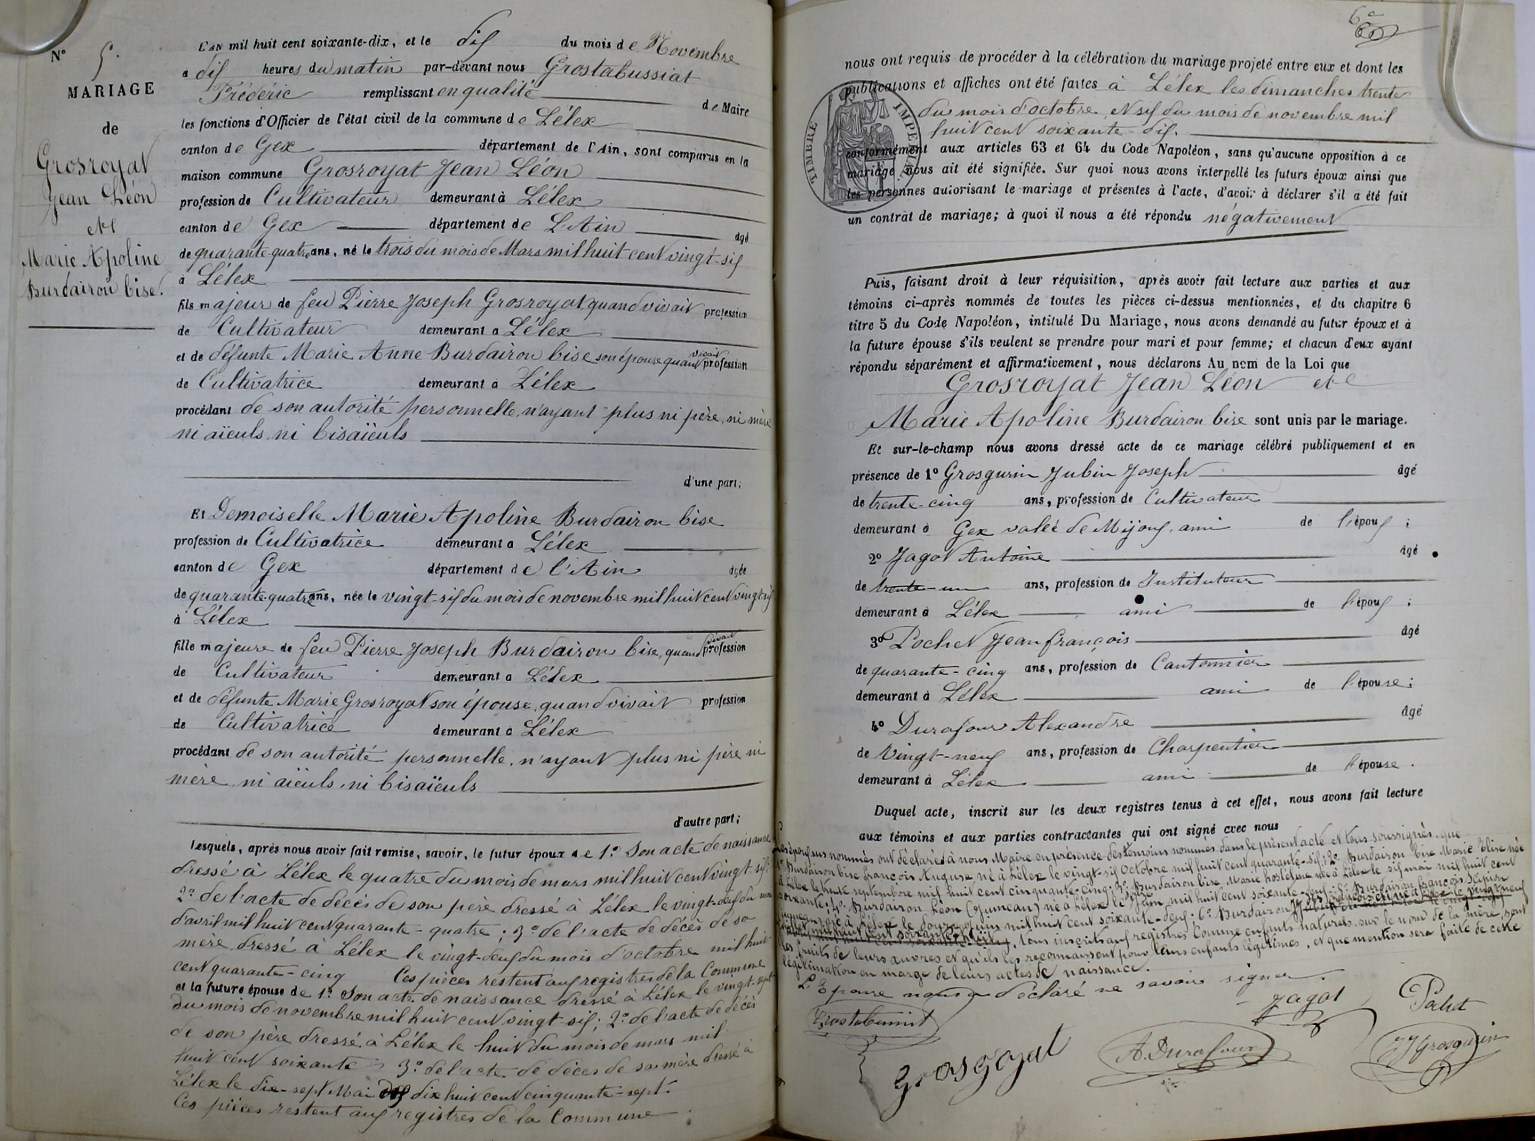 Nº 5.
MARIAGE
de
Grosroyat
Jean Léon
et
Marie Apoline
Burdairon bise.
L'AN mil huit cent soixante-dix, et le dix du mois de Novembre
à dix heures du matin par-devant nous Grostabussiat
Frédéric remplissant en qualité de Maire
les fonctions d'Officier de l'état civil de la commune de Lélex
canton de Gex département de l'Ain, sont comparus en la
maison commune Grosroyat Jean Léon
profession de Cultivateur demeurant à Lélex
canton de Gex département de L'Ain âgé
de quarante quatre ans, né le trois du mois de Mars mil huit cent vingt-six
à Lélex
fils majeur de feu Pierre Joseph Grosroyat quand vivait profession
de Cultivateur demeurant à Lélex
et de défunte Marie Anne Burdairon bise son épouse quand vivait profession
de Cultivatrice demeurant à Lélex
procédant de son autorité personnelle, n'ayant plus ni père, ni mère
ni aïeuls ni bisaïeuls
d'une part;
Et Demoiselle Marie Apoline Burdairon bise
profession de Cultivatrice demeurant à Lélex
canton de Gex département de l'Ain âgée
de quarante quatre ans, née le vingt-six du mois de novembre mil huit cent vingt six
à Lélex
fille majeure de feu Pierre Joseph Burdairon bise, quand vivait profession
de Cultivateur demeurant à Lélex
et de défunte Marie Grosroyat son épouse, quand vivait profession
de Cultivatrice demeurant à Lélex
procédant de son autorité personnelle, n'ayant plus ni père ni
mère, ni aïeuls, ni bisaïeuls
d'autre part;
Lesquels, après nous avoir fait remise, savoir, le futur époux de 1º Son acte de naissance
dressé à Lélex le quatre du mois de mars mil huit cent vingt-six.
2º de l'acte de décès de son père dressé à Lélex le vingt-deux du mois
d'avril mil huit cent quarante-quatre; 3º de l'acte de décès de sa
mère dressé à Lélex le vingt-deux du mois d'octobre mil huit
cent quarante-cinq Ces pièces restent aux registres de la Commune
et la future épouse de 1º Son acte de naissance dressé à Lélex le vingt-sept
du mois de novembre mil huit cent vingt-six; 2º de l'acte de décès
de son père dressé à Lélex le huit du mois de mars mil
huit cent soixante; 3º de l'acte de décès de sa mère dressé à
Lélex le dix-sept Mai dix huit cent cinquante-sept.
Ces pièces restent aux registres de la Commune.
nous ont requis de procéder à la célébration du mariage projeté entre eux et dont les
publications et affiches ont été faites à Lélex les dimanches trente
du mois d'octobre et six du mois de novembre mil
huit cent soixante-dix.
TIMBRE IMPERIAL
conformément aux articles 63 et 64 du Code Napoléon, sans qu'aucune opposition à ce
mariage nous ait été signifiée. Sur quoi nous avons interpellé les futurs époux ainsi que
les personnes autorisant le mariage et présentes à l'acte, d'avoir à déclarer s'il a été fait
un contrat de mariage; à quoi il nous a été répondu négativement
Puis, faisant droit à leur réquisition, après avoir fait lecture aux parties et aux
témoins ci-après nommés de toutes les pièces ci-dessus mentionnées, et du chapitre 6
titre 5 du Code Napoléon, intitulé Du Mariage, nous avons demandé au futur époux et à
la future épouse s'ils veulent se prendre pour mari et pour femme; et chacun d'eux ayant
répondu séparément et affirmativement, nous déclarons Au nom de la Loi que
Grosroyat Jean Léon et
Marie Apoline Burdairon bise sont unis par le mariage.
Et sur-le-champ nous avons dressé acte de ce mariage célébré publiquement et en
présence de 1º Grosgurin Jubin Joseph âgé
de trente cinq ans, profession de Cultivateur
demeurant à Gex valeé de Mijoux, ami de l'époux;
2º Jagot Antoine âgé
de trente-un ans, profession de Instituteur
demeurant à Lélex ami de l'époux;
3º Pochet Jean françois âgé
de quarante-cinq ans, profession de Cantonnier
demeurant à Lélex ami de l'épouse;
4º Durafour Alexandre âgé
de vingt-neuf ans, profession de Charpentier
demeurant à Lélex ami de l'épouse.
Duquel acte, inscrit sur les deux registres tenus à cet effet, nous avons fait lecture
aux témoins et aux parties contractantes qui ont signé avec nous
Les époux susnommés ont déclaré à nous Maire en présence des témoins nommés dans le présent acte et tous soussignés, que
1º Burdairon bise françois Auguste né à Lélex le vingt-six Octobre mil huit cent quarante-six; 2º Burdairon bise Marie Elise née
à Lélex le septembre mil huit cent cinquante-cinq; 3º Burdairon bise, Marie née à Lélex le mai mil huit cent
soixante; 4º Burdairon Léon (Jumeau) né à Lélex le mil huit cent soixante-; 5º Burdairon françois
né à Lélex le mil huit cent soixante-deux; 6º Burdairon
tous inscrits aux registres comme enfants naturels sous le nom de la mère, sont
les fruits de leurs œuvres et qu'ils les reconnaissent pour leurs enfants légitimes, et que mention sera faite de cette
légitimation en marge de leurs actes de naissance.
L'Epouse nous a déclaré ne savoir signer.
Grostabussiat
Jagot
Pochet
Grosroyat
A. Durafour
JJ Grosgurin